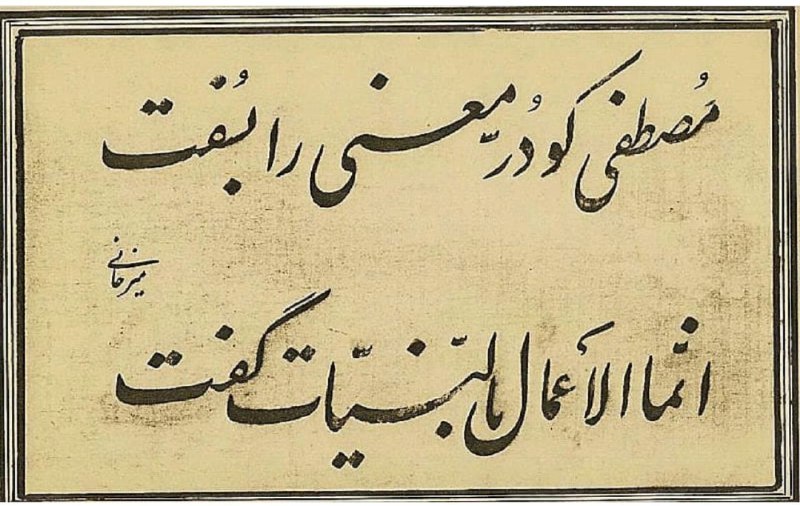 مُصطفی کو دُرّ معنی را بسُفت
میرخانی
انما الأعمال بالنّیّات گفت